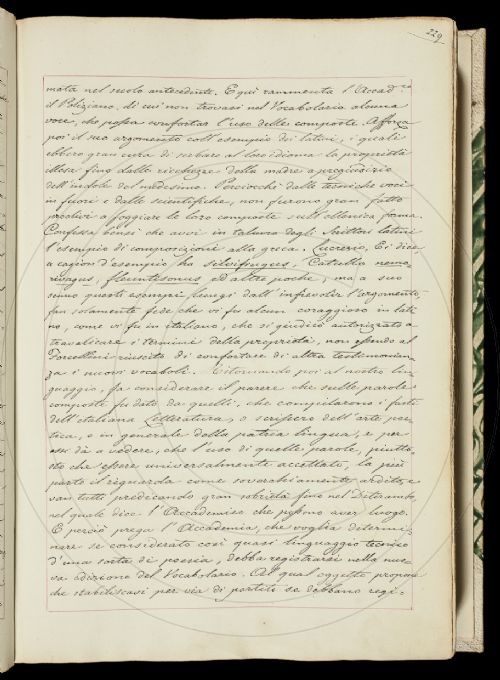 229
mata nel secolo antecedente. E qui rammenta l'Accad.co
il Poliziano, di cui non trovasi nel Vocabolario alcuna
voce, che possa confortar l'uso delle composte. Afforza
poi il suo argomento coll'esempio dei latini, i quali
ebbero gran cura di serbare al loro idioma la proprietà
illesa fino dalle ricchezze della madre a pregiudizio
dell'indole del medesimo. Perciocchè dalle tecniche voci
in fuori e dalle scientifiche, non furono gran fatto
proclivi a foggiare le loro composte sull'ellenica forma.
Confessa bensì che avvi in taluna degli Scrittori latini
l'esempio di composizioni alla greca. Lucrezio, Ei dice,
a cagion d'esempio ha silvifrugees. Catullo nemo-
rivagus, fluentisonus, ed altre poche, ma a suo
senno questi esempi lungi dall'infievolir l'argomento,
fan solamente fede che vi fu alcun coraggioso in lati-
no, come vi fu in italiano, che si giudicò autorizzato a
travalicare i termini della proprietà, non essendo al
Forcellini riuscito di confortare di altra testimonian-
za i nuovi vocaboli. Ritornando poi al nostro lin-
guaggio, fa considerare il parere che sulle parole
composte fu dato da quelli, che compilarono i fasti
dell'italiana Letteratura, o scrissero dell'arte poe-
tica, e in generale della patria lingua; e per
essi dà a vedere, che l'uso di quelle parole, piutto-
sto che essere universalmente accettato, la più
parte il riguarda come soverchiamente ardito, e
van tutti predicando gran sobrietà fino nel Ditirambo,
nel quale dice l'Accademico che possono aver luogo.
E perciò prega l'Accademia, che voglia determi-
nare se considerato così quasi linguaggio tecnico
d'una sorta di poesia, debba registrarsi nella nuo-
va edizione del Vocabolario. Al qual oggetto propone
che stabiliscasi per via di partiti se debbano regi-